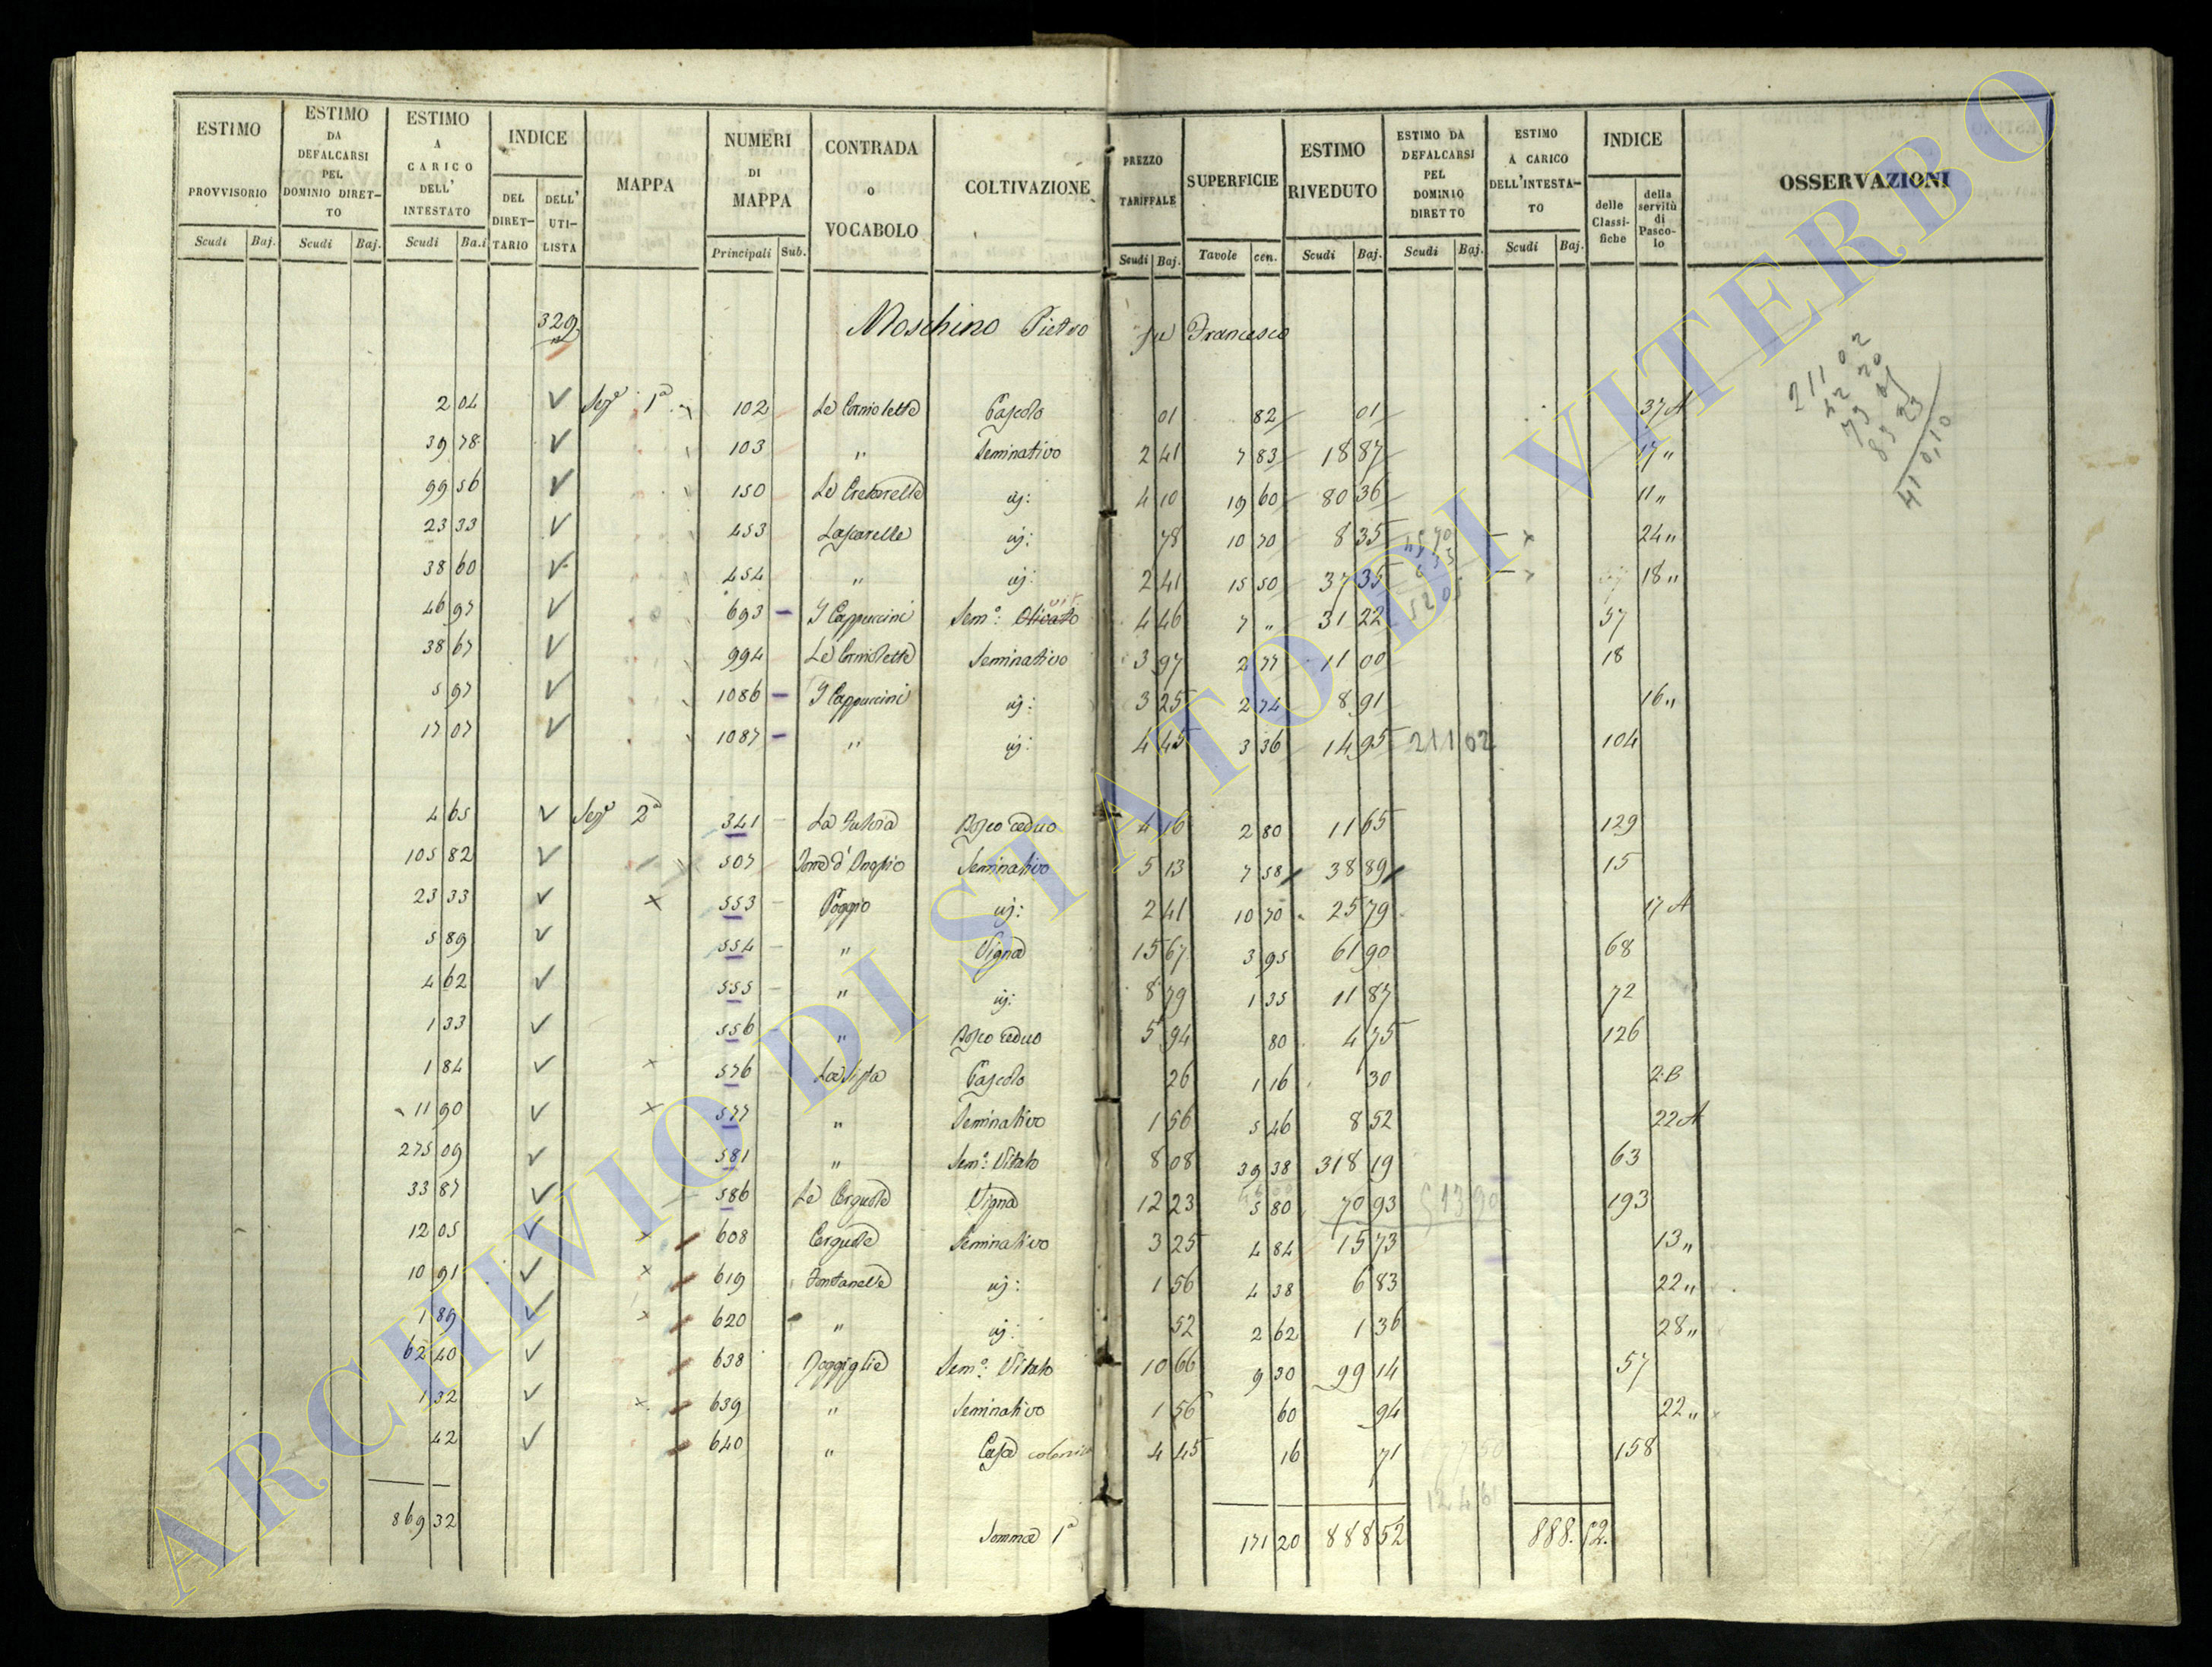 ESTIMO PROVVISORIO Scudi Baj.
ESTIMO DA DEFALCARSI PEL DOMINIO DIRETTO Scudi Baj.
ESTIMO A CARICO DELL' INTESTATO Scudi Ba.i
INDICE DEL DIRETTARIO DELL' UTILISTA
MAPPA
NUMERI DI MAPPA Principali Sub.
CONTRADA o VOCABOLO
COLTIVAZIONE
PREZZO TARIFFALE Scudi Baj.
SUPERFICIE Tavole cen.
ESTIMO RIVEDUTO Scudi Baj.
ESTIMO DA DEFALCARSI PEL DOMINIO DIRETTO Scudi Baj.
ESTIMO A CARICO DELL'INTESTATO Scudi Baj.
INDICE delle Classifiche della servitù di Pascolo
OSSERVAZIONI
329 Moschino Pietro fu Francesco
2 04 Sez.e 1a 102 Le Corniolette Pascolo 01 82 01 37 A
39 78 103 " Seminativo 2 41 7 83 18 87 17 "
99 56 150 Le Cretarelle uj: 4 10 19 60 80 36 11 "
23 33 453 Lascarelle uj: 78 10 70 8 35 24 "
38 60 454 " uj: 2 41 15 50 37 35 18 "
46 97 693 I Cappuccini Sem.o Olivato vit. 4 46 7 " 31 22 57
38 67 994 Le Corniolette Seminativo 3 97 2 77 11 00 18
5 97 1086 I Cappuccini uj: 3 25 2 74 8 91 16 "
17 07 1087 " uj: 4 45 3 36 14 95 211 02 104
4 65 Sez.e 2a 341 La Selva Bosco ceduo 4 16 2 80 11 65 129
105 82 507 Torre d' Seminativo 5 13 7 58 38 89 15
23 33 553 Poggio uj: 2 41 10 70 25 79 17 A
5 89 554 " Vigna 15 67 3 95 61 90 68
4 62 555 " uj: 8 79 1 35 11 87 72
1 33 556 " Bosco ceduo 5 94 80 4 75 126
1 84 576 Pascolo 26 1 16 30 2 B
11 90 577 " Seminativo 1 56 5 46 8 52 22 A
275 09 581 " Sem.o Vitato 8 08 39 38 318 19 63
33 87 586 Le Cerquete Vigna 12 23 5 80 70 93 193
12 05 608 Cerquete Seminativo 3 25 4 84 15 73 13 "
10 91 619 Fontanelle uj: 1 56 4 38 6 83 22 "
1 89 620 " uj: 52 2 62 1 36 28 "
62 40 638 Sem.o Vitato 10 66 9 30 99 14 57
1 32 639 " Seminativo 1 56 60 94 22 "
42 640 " Casa colonica 4 45 16 71 158
869 32 Somma 1a 171 20 888 52 888.52.
211 02
410,10
ARCHIVIO DI STATO DI VITERBO